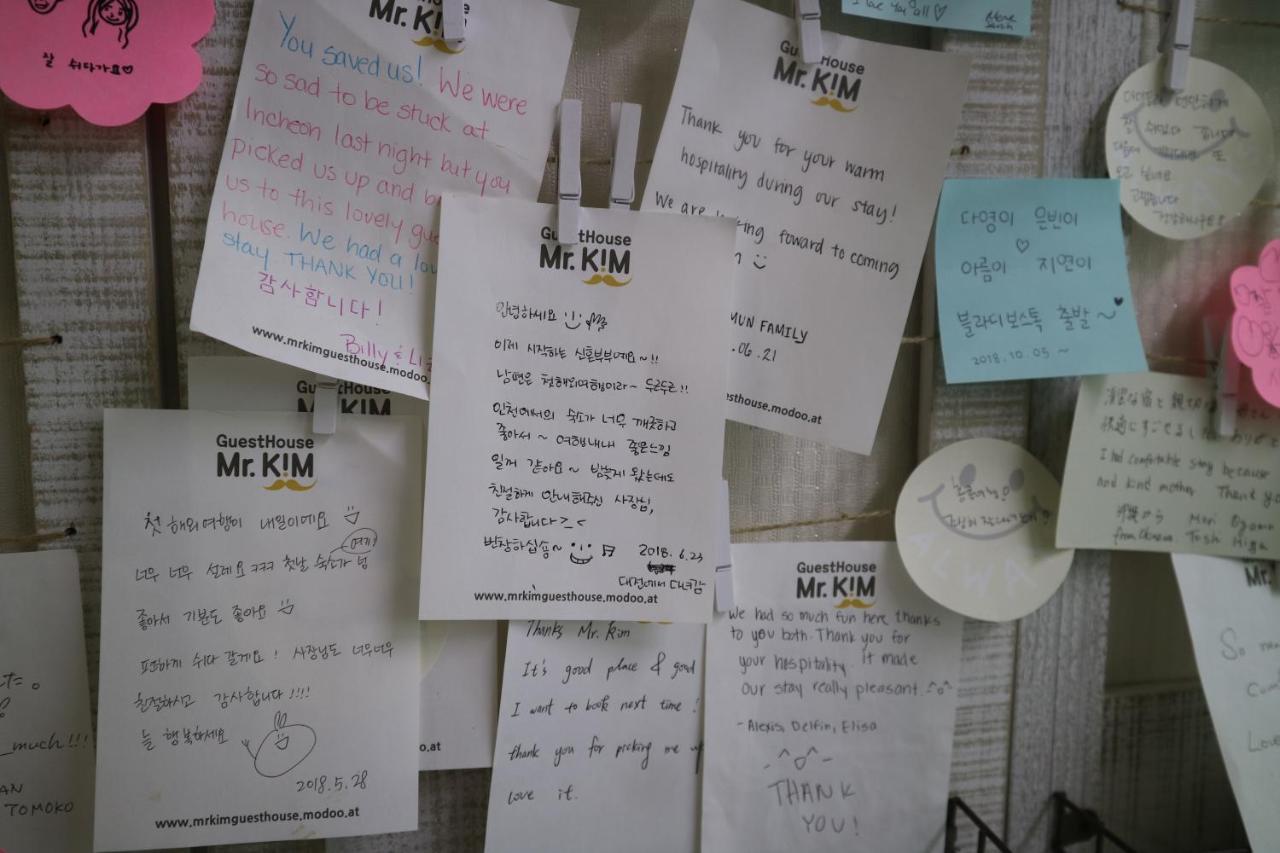 잘 쉬다가요♡
GuestHouse
Mr. K!M
You saved us! We were
so sad to be stuck at
Incheon last night but you
picked us up and
us to this lovely
house. We had a
stay THANK YOU!
감사합니다!
Billy &
www.mrkimguesthouse.modoo.
GuestHouse
Mr. K!M
Thank you for your warm
hospitality during our stay!
We are
foward to coming
FAMILY
.06.21
uesthouse.modoo.at
I love you all ♡
GuestHouse
Mr. K!M
안녕하세요
이제 시작하는 신혼부부예요~!!
남편은 첫해외여행이라~ 두근두근!!
인천에서의 숙소가 너무 깨끗하고
좋아서~ 여행내내 좋은느낌
일꺼 같아요~ 밤늦게 왔는데도
친절하게 안내해주신 사장님,
감사합니다>_<
번창하십숑~
2018.6.23
대전에서 다녀감
www.mrkimguesthouse.modoo.at
다영이 은빈이
♡
아름이 지연이
블라디보스톡 출발~
2018.10.05~
GuestHouse
Mr. K!M
첫 해외여행이 내일이예요
여기
너무 너무 설레요 ㅋㅋㅋ 첫날 숙소가 넘
좋아서 기분도 좋아요
편하게 쉬다 갈게요! 사장님도 너무너무
친절하시고 감사합니다!!!!
늘 행복하세요
2018.5.28
www.mrkimguesthouse.modoo.at
GuestHouse
Mr. K!M
.at
Thanks Mr. Kim
It's good place & good
I want to book next time!
thank you for picking me up
love it.
GuestHouse
Mr. K!M
We had so much fun here thanks
to you both. Thank you for
your hospitality. it made
our stay really pleasant. ^o^
- Alexis, Delfin, Elisa
THANK
YOU!
I had comfortable stay because
and kind mother. Thank
from Okinawa Toshi Higa
much!!!
TOMOKO
Mr.
So
Love